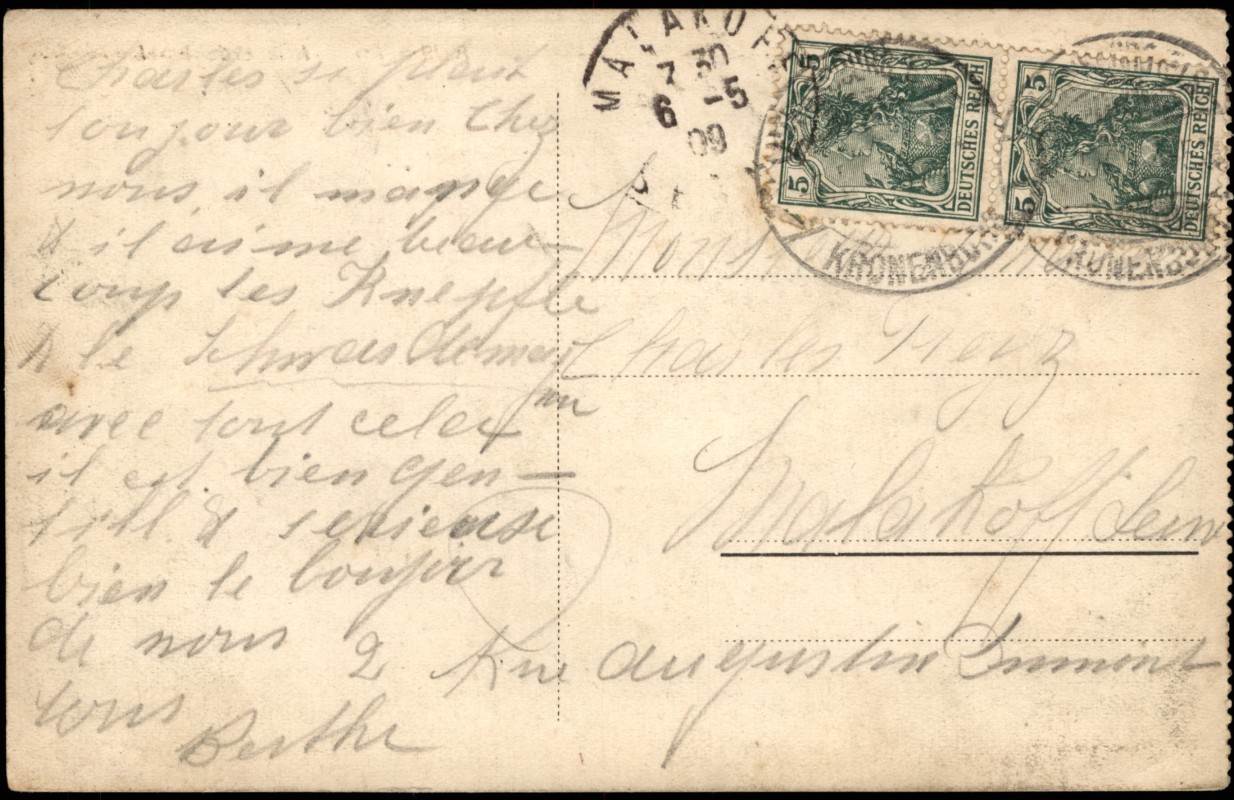 Charles se plait
toujour bien Chez
nous il mange
& il aime beau-
coup les Knepfle
& le
avec tout cela
il est bien gen-
till & serieuse
bien le bonjour
de nous
tous
Berthe
MALAKOF
7 30
6 -5
09
5 5
DEUTSCHES REICH
5 5
DEUTSCHES REICH
KRONENBURG
KRONENBURG
Charles
Malakoff Seine
2 Rue Augustin Dumont